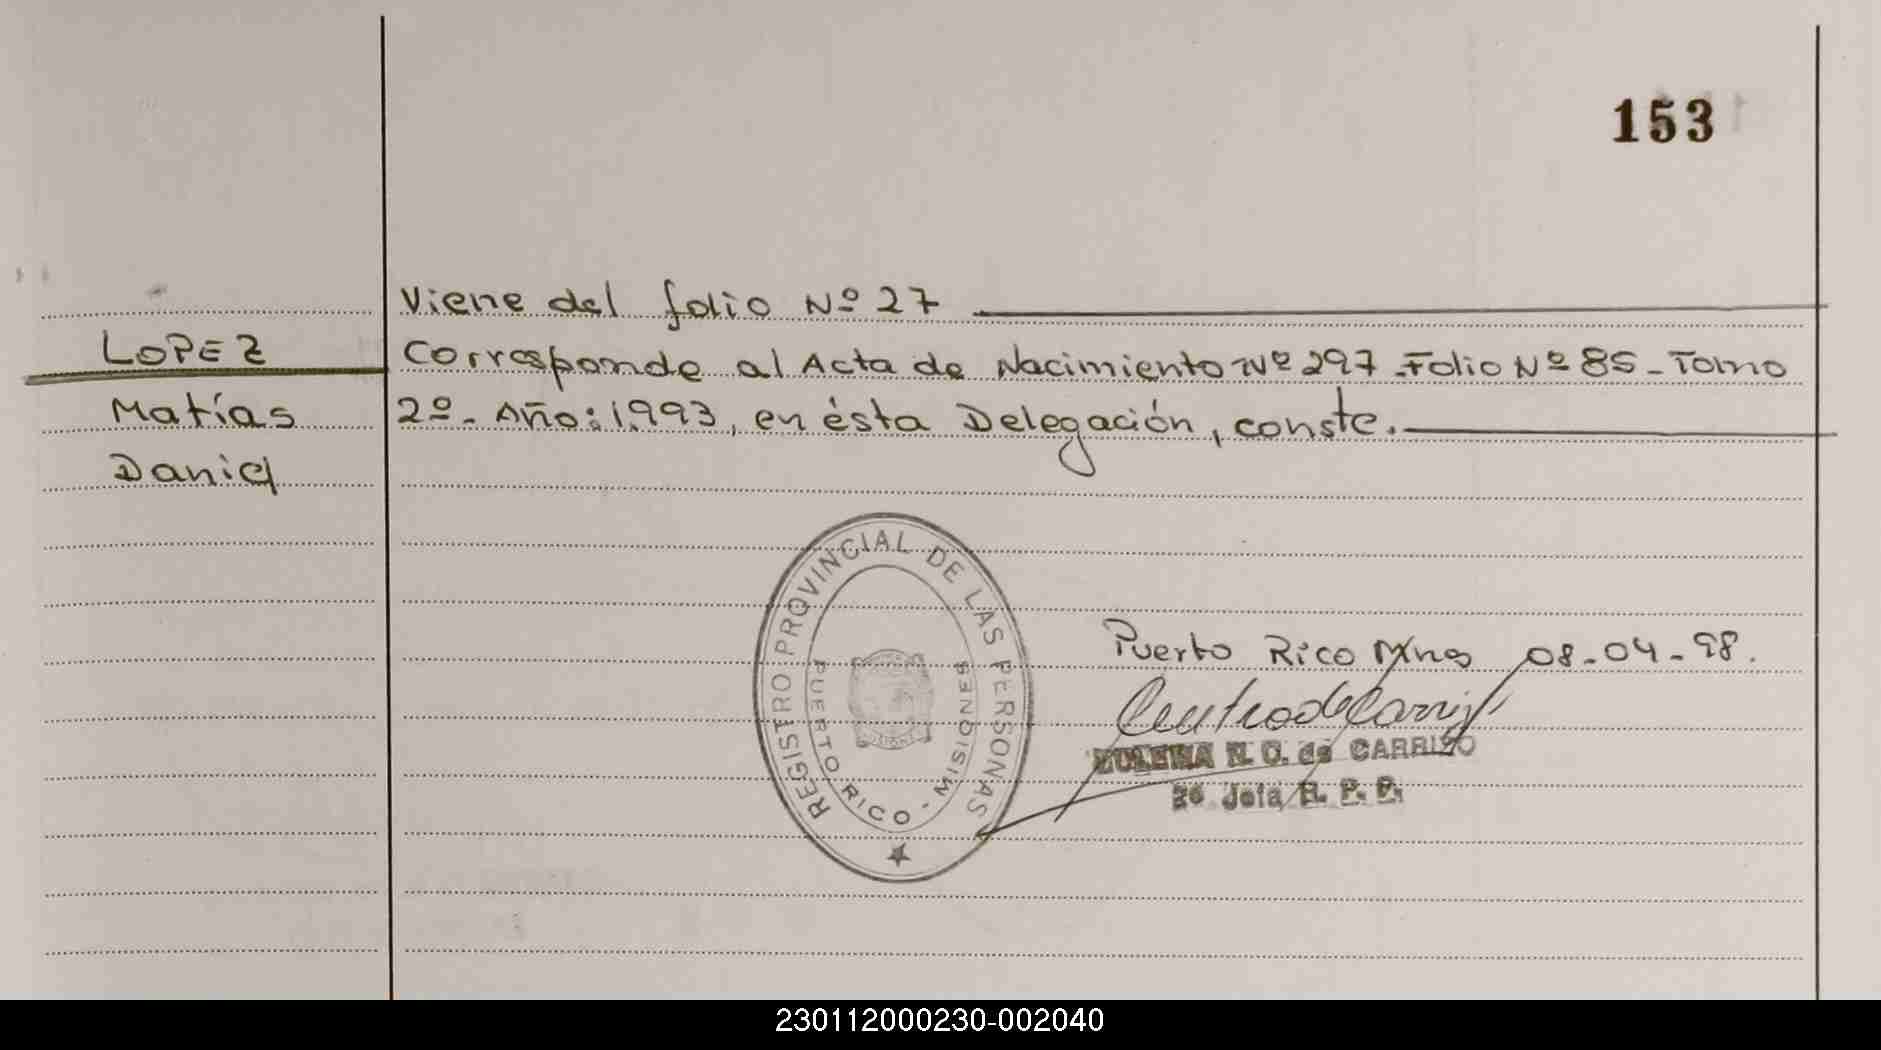 153
Viene del folio Nº 27
LOPEZ
Corresponde al Acta de Nacimiento Nº 297 - Folio Nº 85 - Tomo
Matías
2º - Año: 1.993, en ésta Delegación, conste.
Daniel
REGISTRO PROVINCIAL DE LAS PERSONAS
PUERTO RICO - MISIONES
Puerto Rico Mnes 08-04-98.
R. C. de CARRIZO
2º Jefa R. P. P.
230112000230-002040